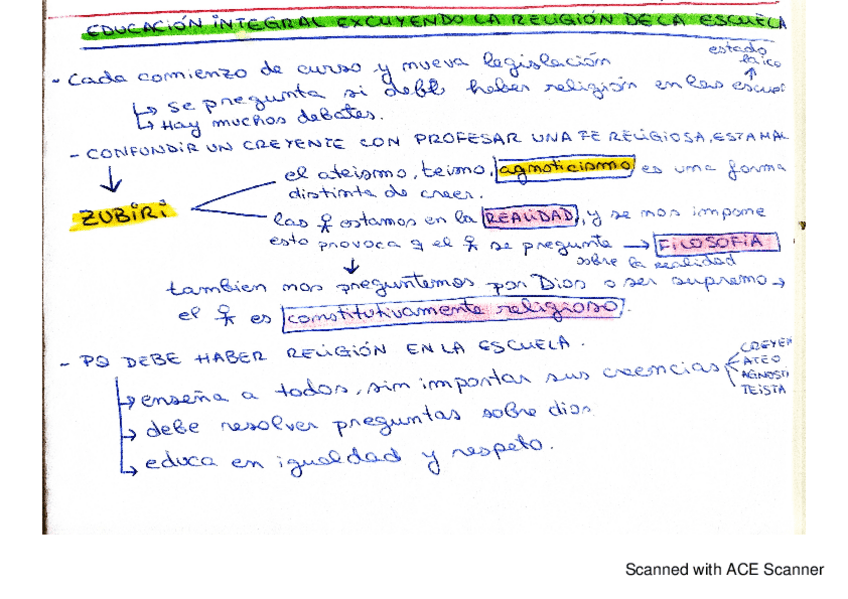 EDUCACIÓN INTEGRAL EXCLUYENDO LA RELIGIÓN DE LA ESCUELA
- Cada comienzo de curso y nueva legislación
estado laico
↳ se pregunta si debe haber religión en las escue
↳ Hay muchos debates.
- CONFUNDIR UN CREYENTE CON PROFESAR UNA FE RELIGIOSA, ESTA MAL
el ateismo, teismo, agnosticismo es una forma
distinta de creer.
ZUBIRI
las estamos en la REALIDAD, y se nos impone
esto provoca q el se pregunte → FILOSOFIA
sobre la realidad
tambien nos preguntemos por Dios o ser supremo →
el es constitutivamente religioso.
- PQ DEBE HABER RELIGIÓN EN LA ESCUELA.
↳ enseña a todos, sin importar sus creencias
CREYEN
ATEO
AGNOSTI
TEISTA
↳ debe resolver preguntas sobre dios.
↳ educa en igualdad y respeto.
Scanned with ACE Scanner